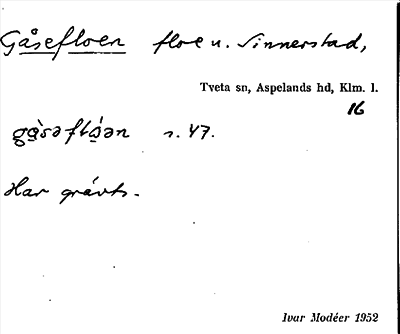 Gåsefloen floe u. Sinnerstad,
Tveta sn, Aspelands hd, Klm. l.
16
gå̀səflóən s. 47.
Har grävts.
Ivar Modéer 1952